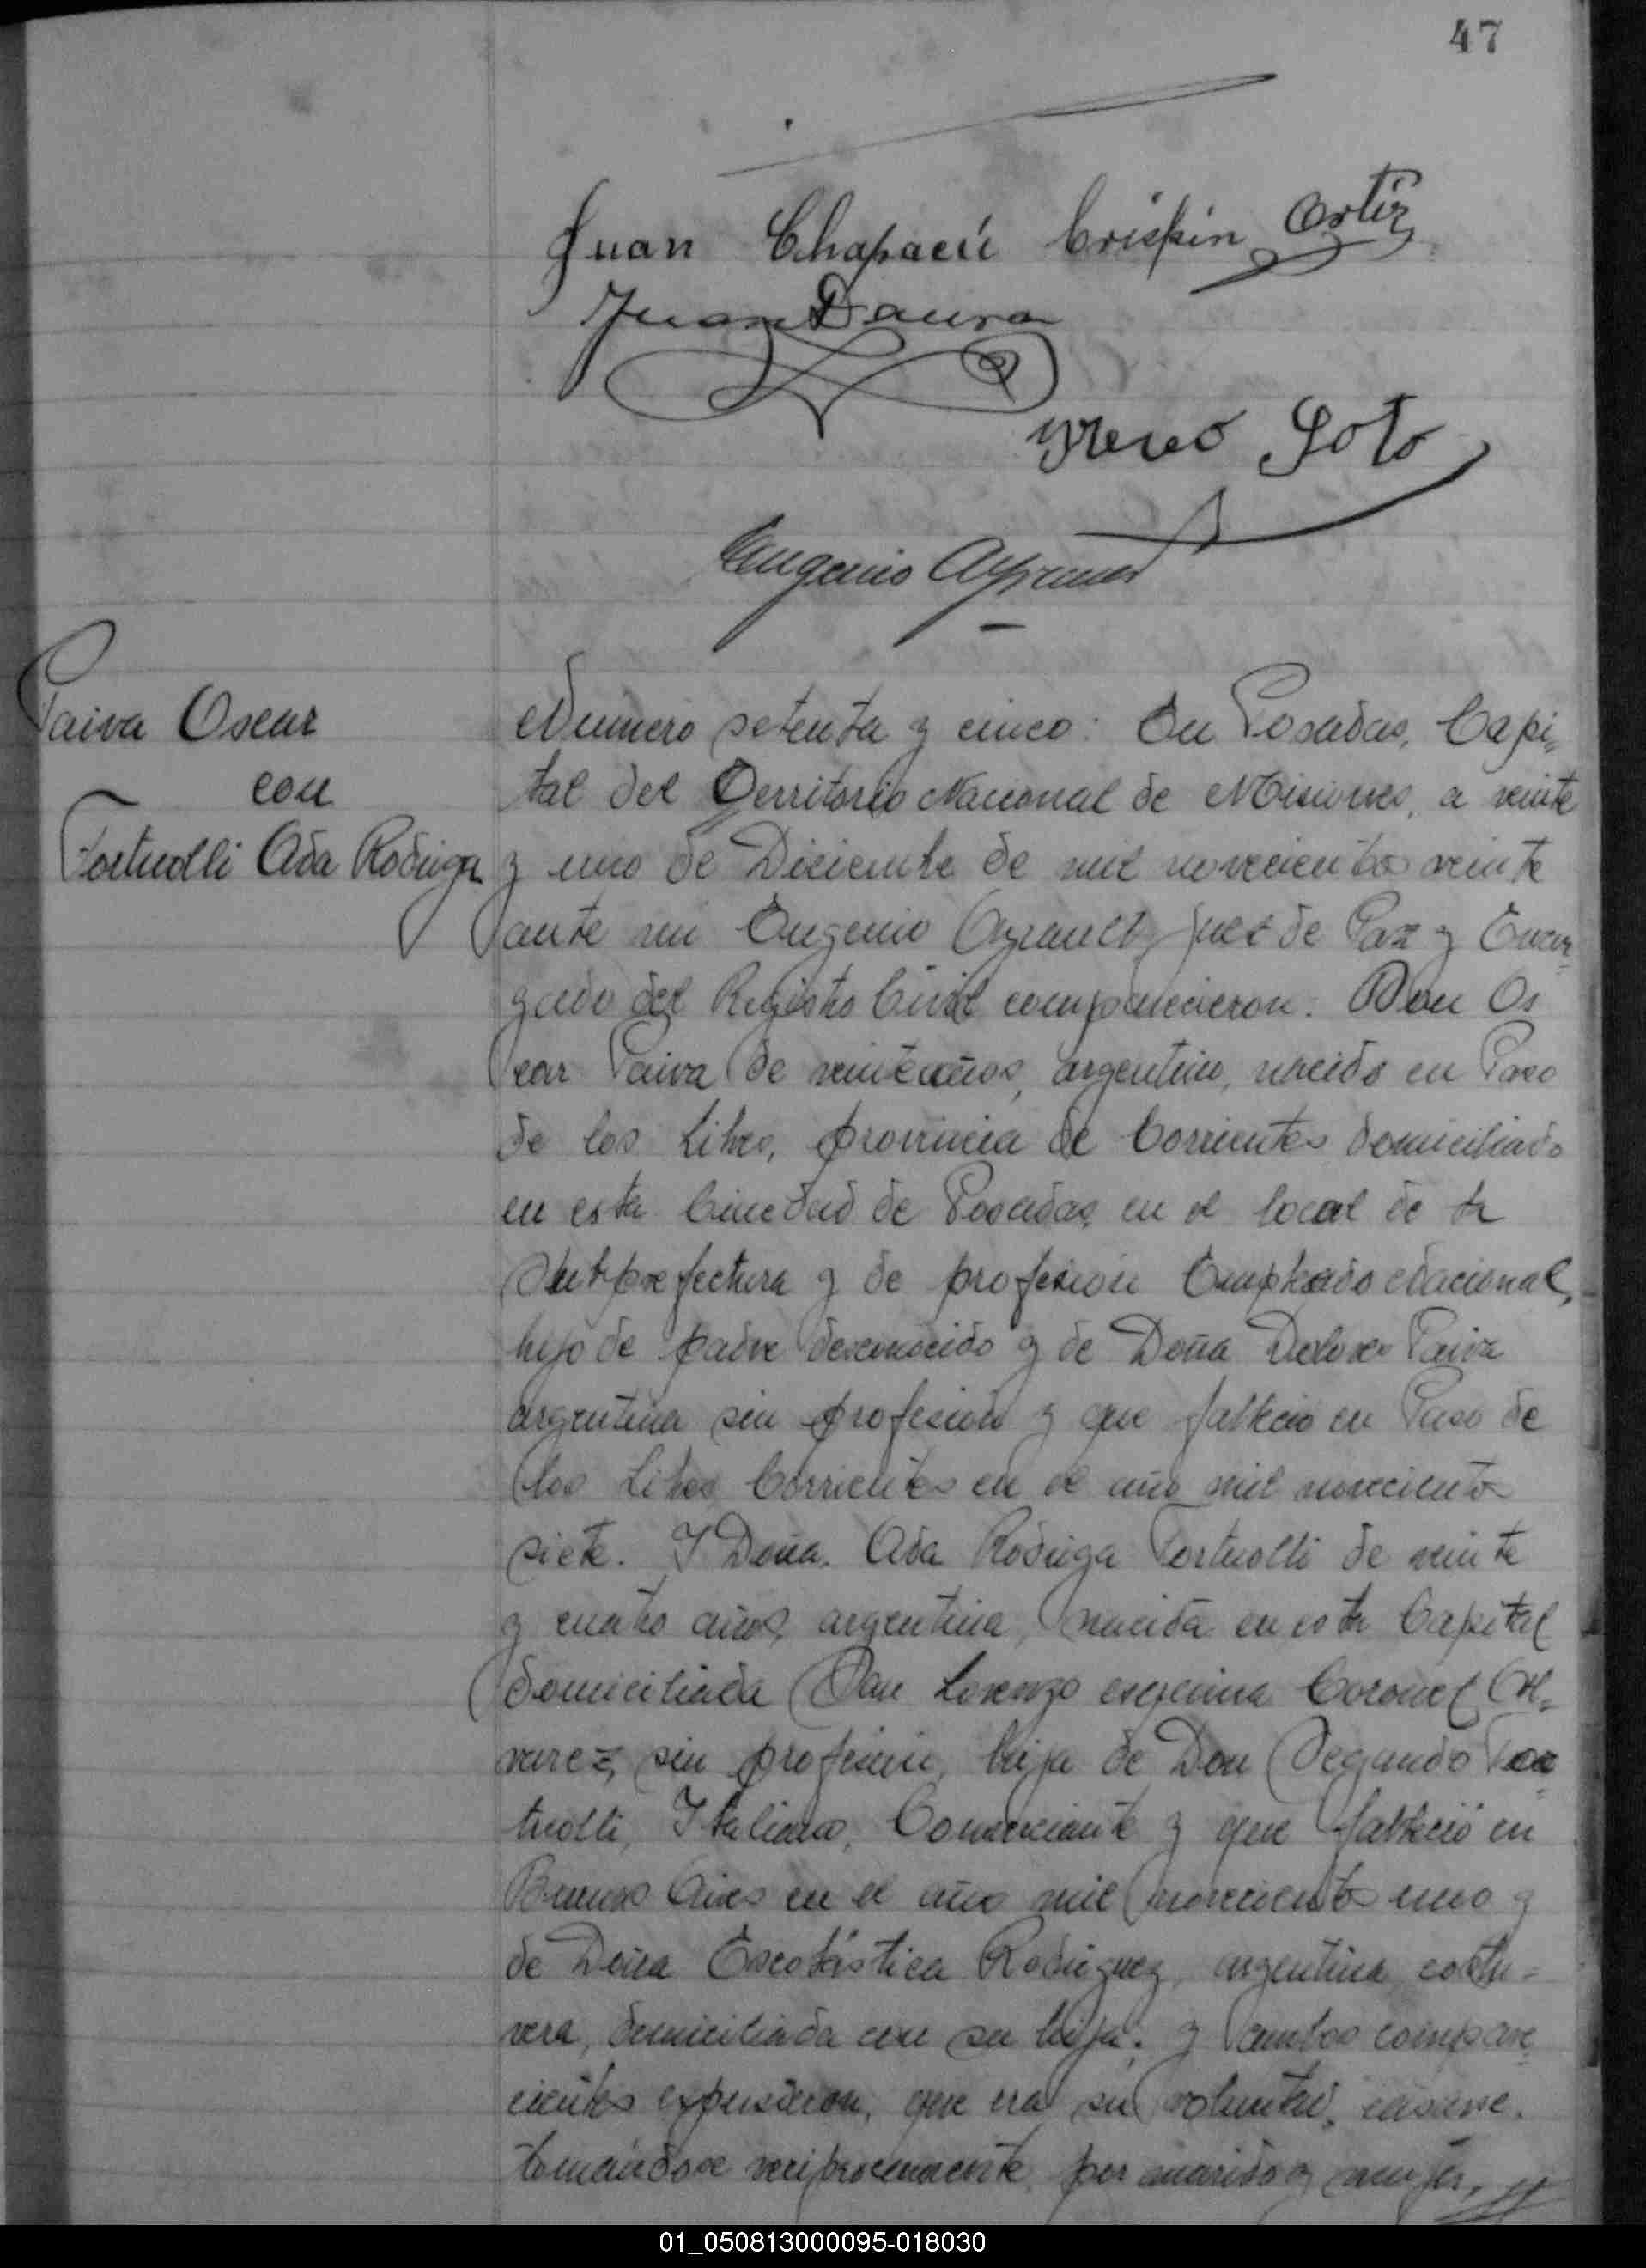 47
Juan Chapacú Crispin Ortiz
Juan Daura
Yreneo Soto
Eugenio
Paiva Oscar
con
Tortuolli Ada Rodriga
Número setenta y cinco: En Posadas, Capi-
tal del Territorio Nacional de Misiones, a veinte
y uno de Diciembre de mil novecientos veinte
ante mi Eugenio Ayrault Juez de Paz y Encar-
gado del Registro Civil comparecieron: Don Os
car Paiva de veinte años, argentino, nacido en Paso
de los Libres, provincia de Corrientes domiciliado
en esta Ciudad de Posadas, en el local de la
Subprefectura y de profesión Empleado Nacional,
hijo de padre desconocido y de Doña Dolores Paiva
argentina sin profesión y que falleció en Paso de
los Libres Corrientes en el año mil novecientos
siete. Y Doña. Ada Rodriga Tortuolli de veinte
y cuatro años, argentina, nacida en esta Capital
domiciliada San Lorenzo esquina Coronel Al-
varez, sin profesión, hija de Don Segundo Tor-
tuolli, Italiano, Comerciante y que falleció en
Buenos Aires en el año mil novecientos uno y
de Doña Escolástica Rodriguez, argentina, costu-
rera, domiciliada con su hija; y ambos compare-
cientes expusieron, que era su voluntad, casarse.
tomándose reciprocamente, por marido y mujer,
01_050813000095-018030